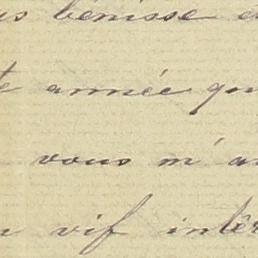 us bénisse e
te année qu
vous m'a
n vif intér